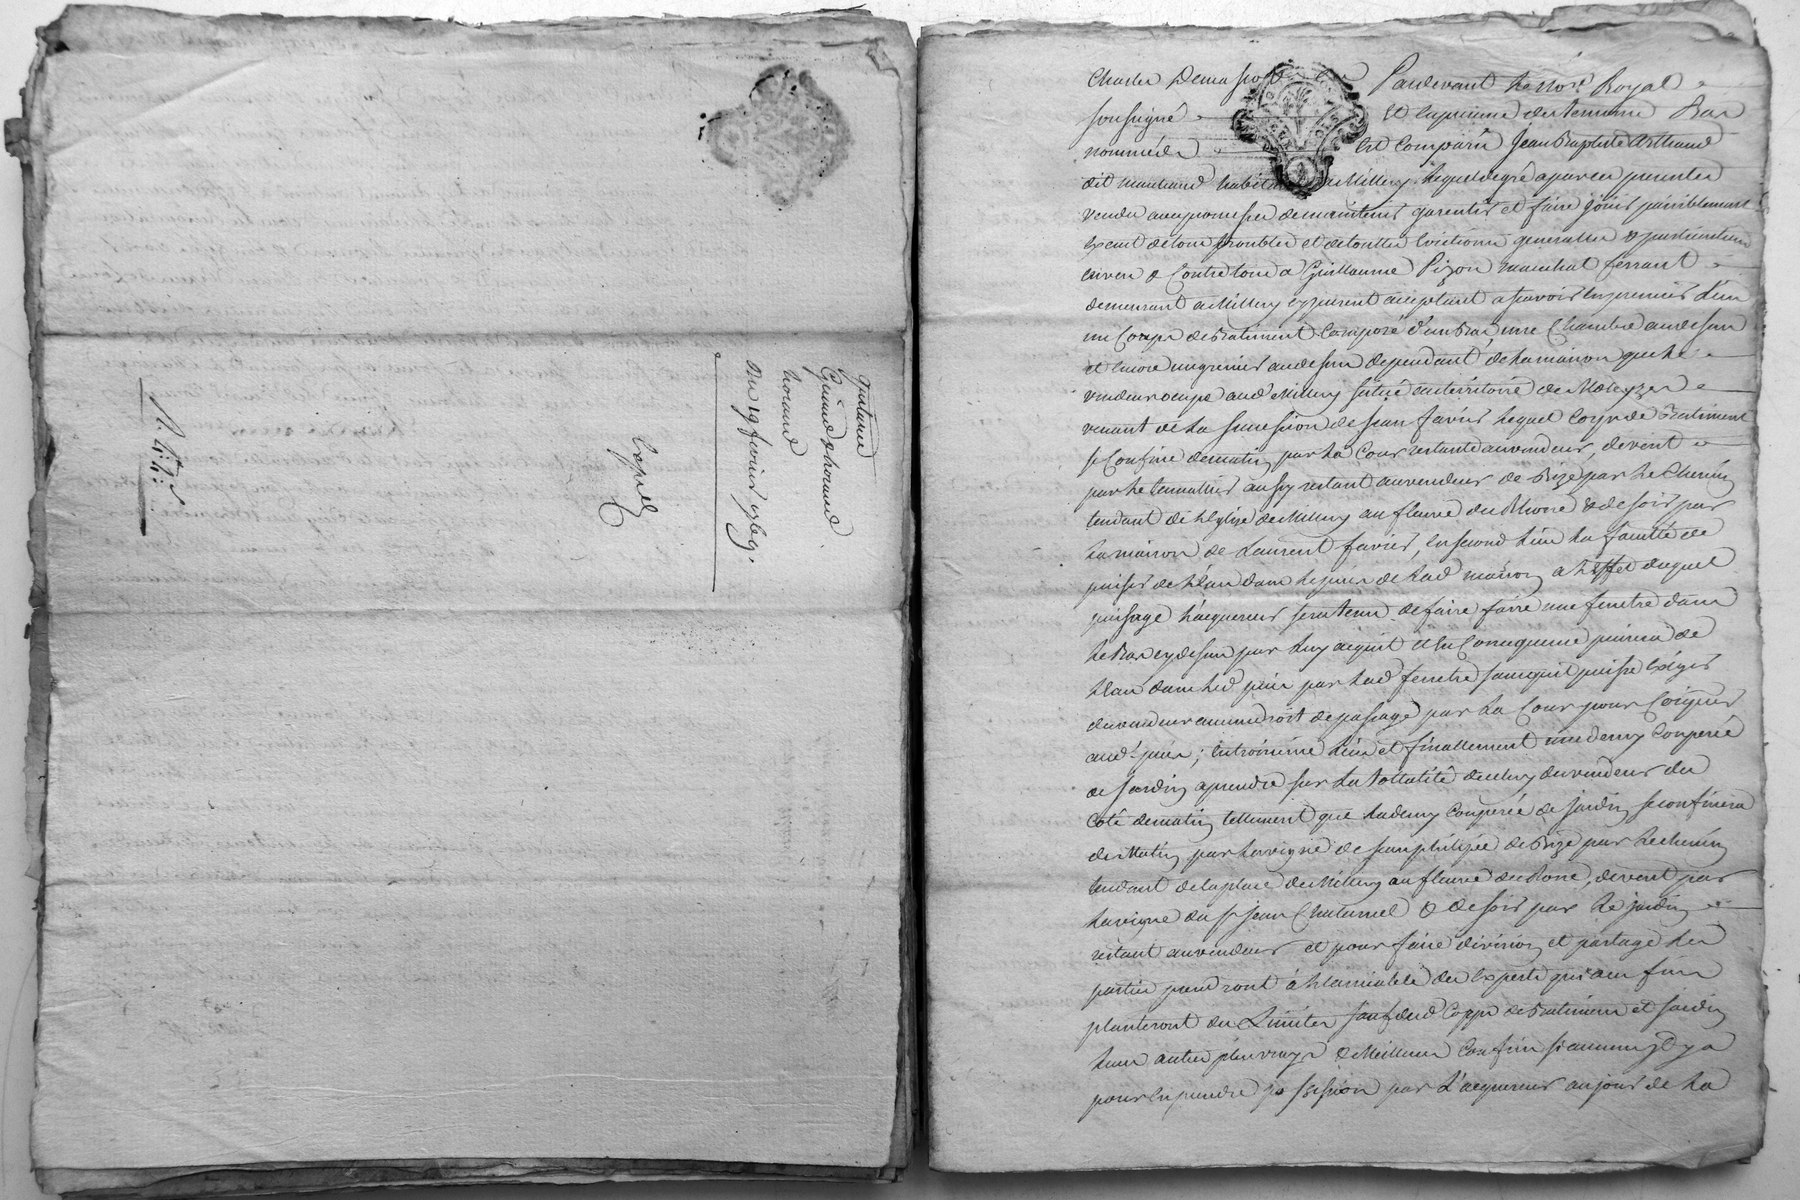 quittance
Giraud & horand
horand
Du 19 fevrier 1769.
Expedié
Charles Pardevant Le Nore. Royal
soussigné Et En presence des temoins Bas
nommés Est Comparu Jean Baptiste Arthaud
dit marchand habitant a Millery Lequel de gré a par ces presentes
vendu avec promesses de maintenir garentir et faire Jouir paisiblement
Exent de tous troubles et de touttes Evictions generalles & particulieres
envers & Contre tous a Guillaume Pizon marechal ferrant
demeurant a Millery cy present acceptant a scavoir En premier Lieu
un Corps de Batiment Composé d'un Bas, une Chambre au dessus
et Encore un grenier au dessus dependant de La maison que Le
vendeur occupe aud. Millery scitué au territoire de
venant de La succession de Jean favier Lequel Corps de Batiment
se Confine de matin par La Cour restante au vendeur, de vent
par Le tenaillier aussy restant au vendeur de Bize par Le Chemin
tendant de L'Eglize de Millery au fleuve du Rhone & de soir par
La maison de Laurent favier, En second Lieu La faculté de
puiser de L'eau dans Le puis de Lad maison a L'Effet duquel
puisage L'acquereur sera tenu de faire faire une fenetre dans
Le Bas cy dessus par Luy acquit et En Consequence puisera de
L'eau dans Led puis par Lad fenetre sans qu'il puisse Exiger
du vendeur aucun droit de passage par La Cour pour
aud. puis; En troisieme Lieu et finallement une demy Couperée
de Jardin a prendre sur La tottalité de celuy du vendeur du
Coté de matin tellement que La demy Couperée de Jardin se confinera
de Matin par La vigne de Jean philipée de Bize par Le chemin
tendant de la place de Millery au fleuve du Rone, de vent par
La vigne du sr Jean Chatanel & de soir par Le Jardin
restant au vendeur et pour faire division et partage Les
parties prendront à L'amiable des Experts qui aux fins
planteront des Limites sauf dud Corps de Batiment et Jardin
Leurs autres plus vrays & Meilleurs Confins si aucuns y a
pour En prendre possession par L'acquereur au jour de La